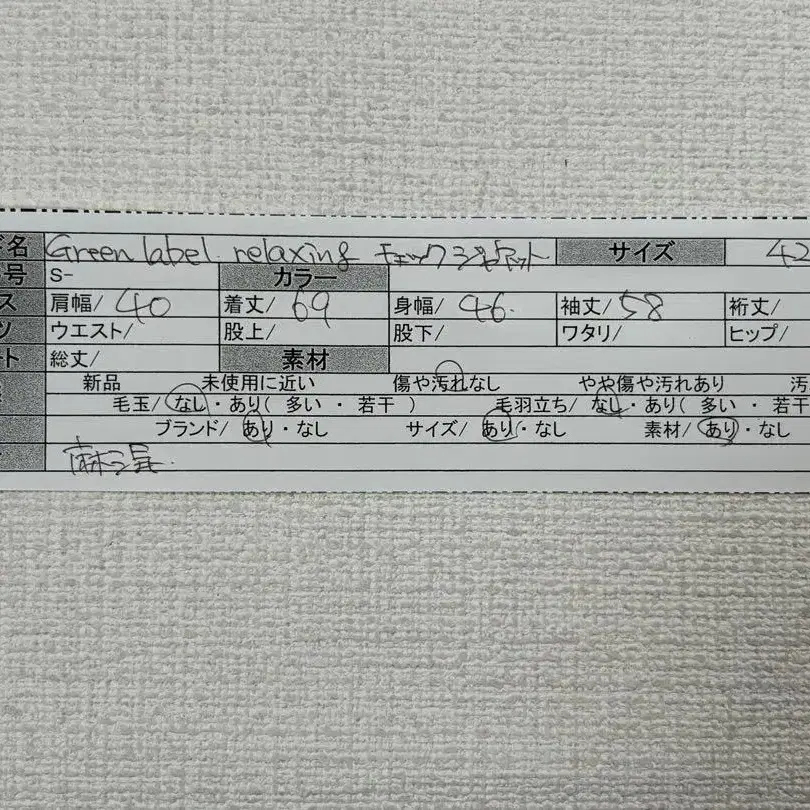 ド名 Green label relaxing チェックジャケット サイズ 42
号 S- カラー
ス 肩幅/ 40 着丈/ 69 身幅/ 46 袖丈/ 58 裄丈/
ツ ウエスト/ 股上/ 股下/ ワタリ/ ヒップ/
ート 総丈/ 素材
新品 未使用に近い 傷や汚れなし やや傷や汚れあり 汚
毛玉/ なし・あり( 多い ・ 若干 ) 毛羽立ち/ なし・あり( 多い ・ 若干
ブランド/ あり・なし サイズ/ あり・なし 素材/ あり・なし
麻混